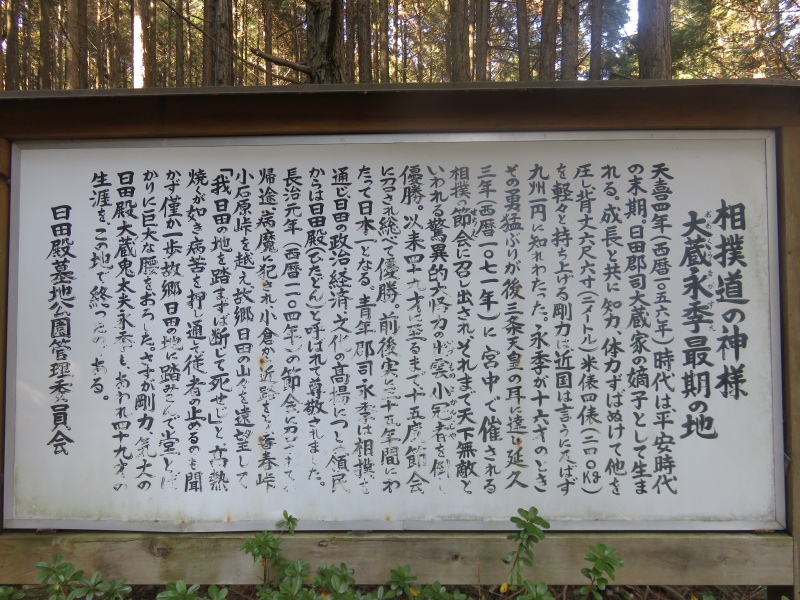 相撲道の神様
大蔵永季最期の地
天喜四年(西暦一〇五六年)時代は平安時代
の末期、日田郡司大蔵家の嫡子として生ま
れる。成長と共に知力、体力ずばぬけて他を
圧し背丈六尺六寸(二メートル)米俵四俵(二四〇kg)
を軽々と持ち上げる剛力は近国は言うに及ばず
九州一円に知れわたった。永季が十六才のとき
その勇猛ぶりが後三条天皇の耳に達し延久
三年(西暦一〇七一年)に宮中で催される
相撲の節会に召し出され、それまで天下無敵と
いわれる驚異的大怪力の出雲小冠者を倒し
優勝。以来四十九才に至るまで十五度節会
に召され総べて優勝。前後実に三十五年間にわ
たって日本一となる。青年郡司永季は相撲を
通じ日田の政治経済、文化の高揚につとめ領民
からは日田殿(ひたどん)と呼ばれて尊敬されました。
長治元年(西暦一一〇四年)の節会に
帰途病魔に犯され小倉から近路をとり香春峠
小石原峠を越え故郷日田の山々を遠望して
「我日田の地を踏まずば断じて死せじ」と高熱
焼くが如き病苦を押し通し従者の止めるのも聞
かず僅か一歩故郷日田の地に踏み込んで堂とば
かりに巨大な腰をおろした。さすが剛力、気丈の
日田殿大蔵鬼太夫永季もあわれ四十九才の
生涯をこの地で終ったのである。
日田殿墓地公園管理委員会